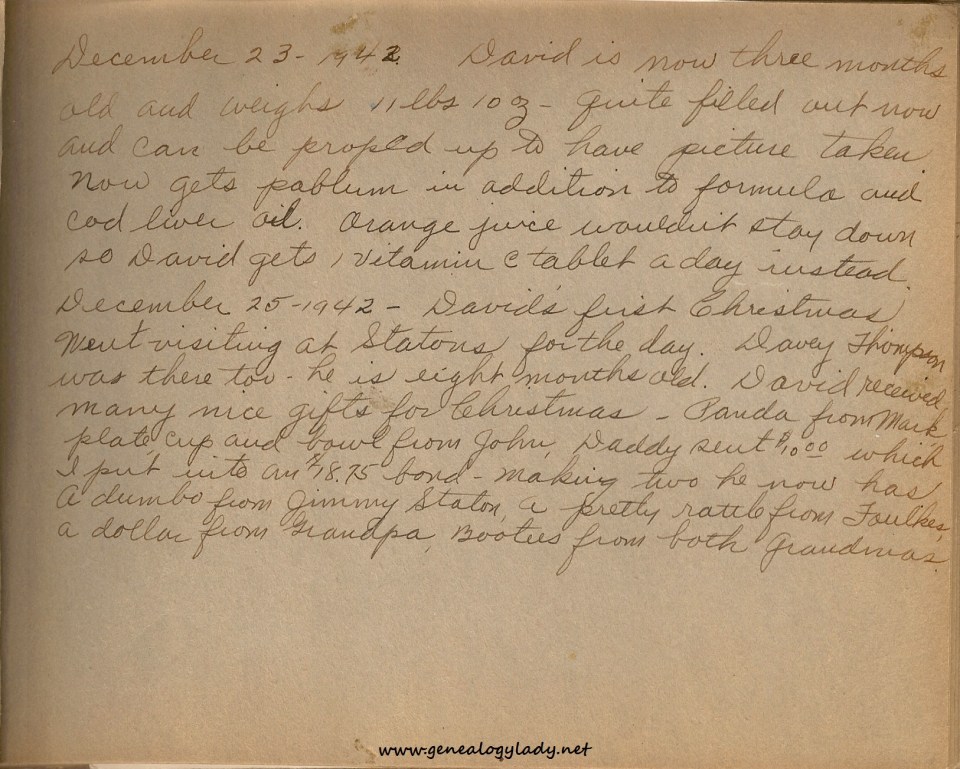 December 23-1942. David is now three months
old and weighs 11 lbs 10 oz - quite filled out now
and can be prop'd up to have picture taken
Now gets pablum in addition to formula and
cod liver oil. Orange juice wouldn't stay down
so David gets 1 vitamin C tablet a day instead.
December 25-1942 - David's first Christmas
Went visiting at Statons for the day. Davey Thompson
was there too - he is eight months old. David received
many nice gifts for Christmas - Panda from Mark
plate, cup and bowl from John, Daddy sent $10.00 which
I put into an $18.75 bond - making two he now has
A dumbo from Jimmy Staton, a pretty rattle from Faulkes,
a dollar from Grandpa, Booties from both Grandmas.
www.genealogylady.net